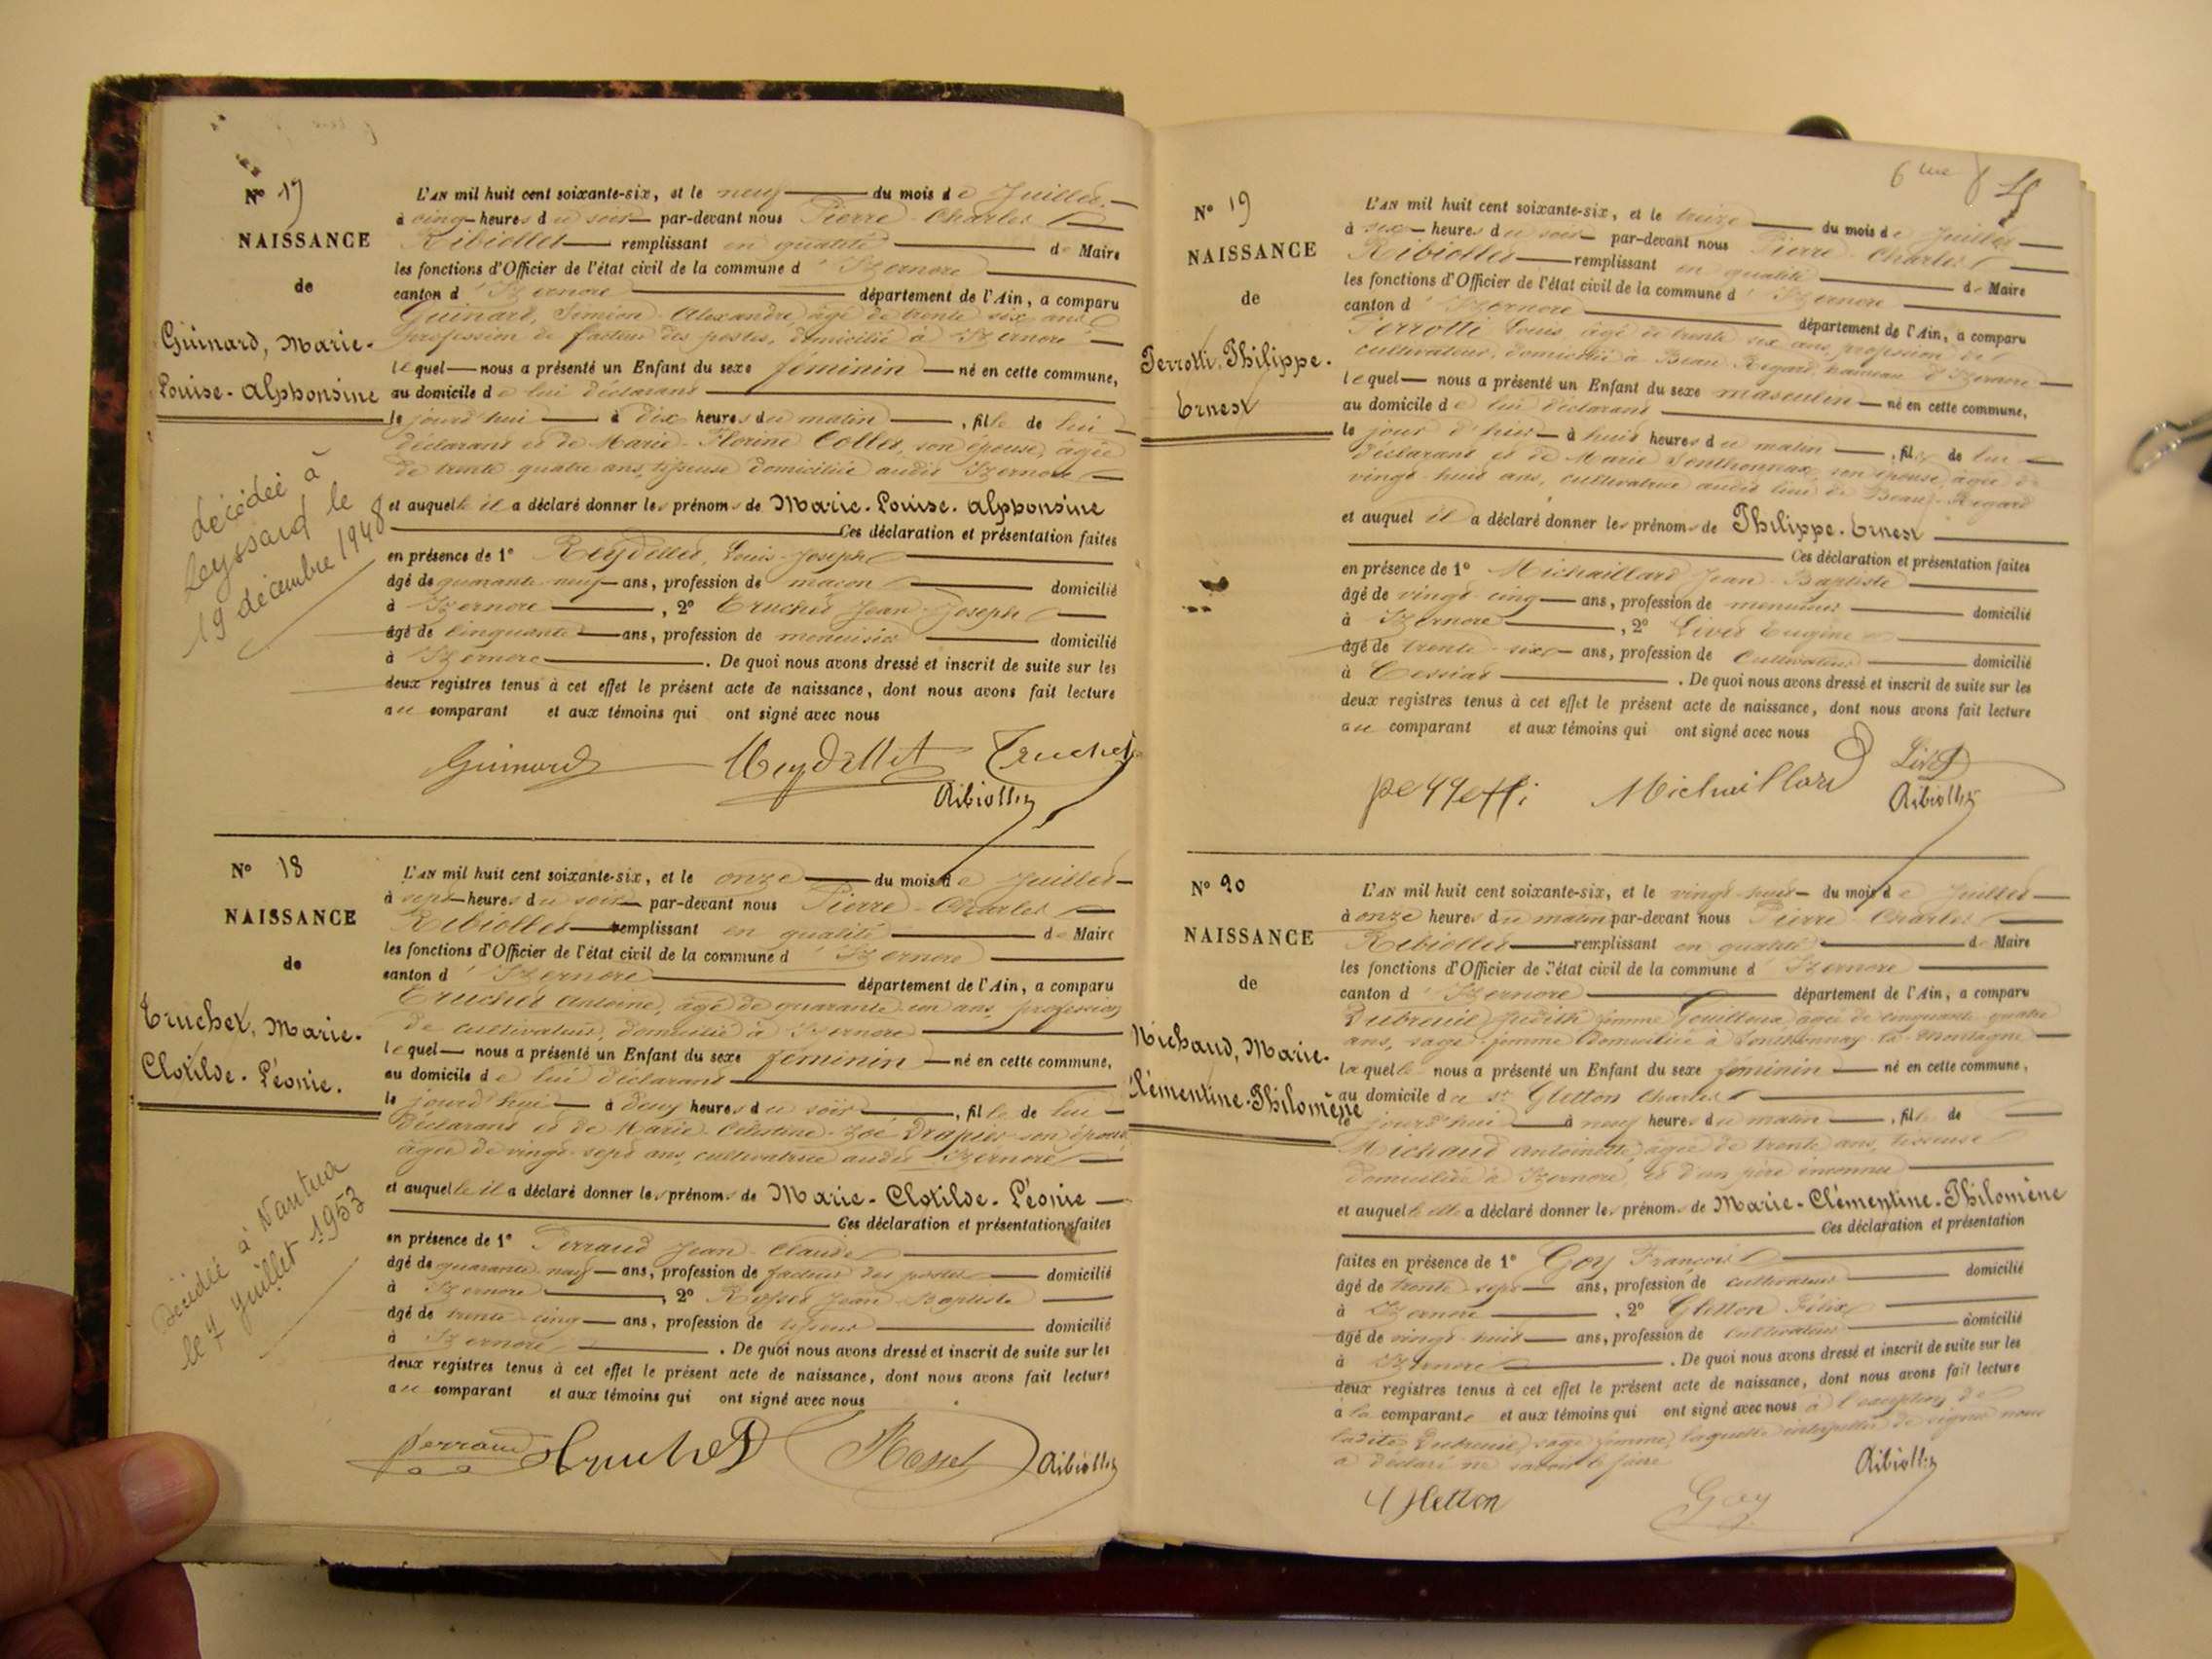 Nº 17
NAISSANCE
de
Guinard, Marie-
Louise-Alphonsine
décédée à
Leyssard le
19 décembre 1948
L'AN mil huit cent soixante-six, et le neuf du mois de Juillet
à cinq heures du soir par-devant nous Pierre-Charles
Ribiollet remplissant en qualité de Maire
les fonctions d'Officier de l'état civil de la commune d'Izernore
canton d'Izernore département de l'Ain, a comparu
Guinard, Siméon-Alexandre, âgé de trente six ans
profession de facteur des postes, domicilié à Izernore
lequel nous a présenté un Enfant du sexe féminin né en cette commune,
au domicile de lui déclarant
le jourd'hui à dix heures du matin, fille de lui
déclarant et de Marie-Florine Collet, son épouse, âgée
de trente quatre ans, tisseuse domiciliée audit Izernore
et auquelle il a déclaré donner les prénoms de Marie-Louise-Alphonsine
Ces déclaration et présentation faites
en présence de 1º Reydellet, Louis-Joseph
âgé de quarante neuf ans, profession de maçon domicilié
à Izernore, 2º Truchet Jean-Joseph
âgé de cinquante ans, profession de menuisier domicilié
à Izernore. De quoi nous avons dressé et inscrit de suite sur les
deux registres tenus à cet effet le présent acte de naissance, dont nous avons fait lecture
au comparant et aux témoins qui ont signé avec nous
Guinard Reydellet Truchet
Ribiollet
Nº 18
NAISSANCE
de
Truchet, Marie-
Clotilde-Léonie.
Décédée à Nantua
le 7 Juillet 1953
L'AN mil huit cent soixante-six, et le onze du mois de Juillet
à sept heures du soir par-devant nous Pierre-Charles
Ribiollet remplissant en qualité de Maire
les fonctions d'Officier de l'état civil de la commune d'Izernore
canton d'Izernore département de l'Ain, a comparu
Truchet Antoine, âgé de quarante un ans, profession
de cultivateur, domicilié à Izernore
lequel nous a présenté un Enfant du sexe féminin né en cette commune,
au domicile de lui déclarant
le jourd'hui à deux heures du soir, fille de lui
déclarant et de Marie-Célestine-Zoé Drapier son épouse
âgée de vingt sept ans, cultivatrice audit Izernore
et auquelle il a déclaré donner les prénoms de Marie-Clotilde-Léonie
Ces déclaration et présentation faites
en présence de 1º Perraud Jean-Claude
âgé de quarante neuf ans, profession de facteur des postes domicilié
à Izernore, 2º Rosset Jean-Baptiste
âgé de trente cinq ans, profession de domicilié
à Izernore. De quoi nous avons dressé et inscrit de suite sur les
deux registres tenus à cet effet le présent acte de naissance, dont nous avons fait lecture
au comparant et aux témoins qui ont signé avec nous
Perraud Truchet Rosset Ribiollet
6me
Nº 19
NAISSANCE
de
Perrotti, Philippe-
Ernest
L'AN mil huit cent soixante-six, et le treize du mois de Juillet
à six heures du soir par-devant nous Pierre-Charles
Ribiollet remplissant en qualité de Maire
les fonctions d'Officier de l'état civil de la commune d'Izernore
canton d'Izernore département de l'Ain, a comparu
Perrotti Louis âgé de trente six ans, profession de
cultivateur, domicilié à Beau-Regard, hameau d'Izernore
lequel nous a présenté un Enfant du sexe masculin né en cette commune,
au domicile de lui déclarant
le jour d'hier à huit heures du matin, fils de lui
déclarant et de Marie Senthonnax, son épouse, âgée de
vingt-huit ans, cultivatrice audit lieu de Beau-Regard
et auquel il a déclaré donner les prénoms de Philippe-Ernest
Ces déclaration et présentation faites
en présence de 1º Michaillard Jean-Baptiste
âgé de vingt-cinq ans, profession de menuisier domicilié
à Izernore, 2º Livet Eugène
âgé de trente-six ans, profession de Cultivateur domicilié
à Cessiat. De quoi nous avons dressé et inscrit de suite sur les
deux registres tenus à cet effet le présent acte de naissance, dont nous avons fait lecture
au comparant et aux témoins qui ont signé avec nous
Michaillard Livet
Ribiollet
Nº 20
NAISSANCE
de
Michaud, Marie-
Clémentine-Philomène
L'AN mil huit cent soixante-six, et le vingt-huit du mois de Juillet
à onze heures du matin par-devant nous Pierre-Charles
Ribiollet remplissant en qualité de Maire
les fonctions d'Officier de l'état civil de la commune d'Izernore
canton d'Izernore département de l'Ain, a comparu
Dubreuil Judith femme Gouilloux, âgée de cinquante-quatre
ans, sage-femme domiciliée à Sonthonnax-la-Montagne
laquelle nous a présenté un Enfant du sexe féminin né en cette commune,
au domicile du sr Gletton Charles
le jourd'hui à neuf heures du matin, fille de
Michaud Antoinette, âgée de trente ans, tisseuse
domiciliée à Izernore, et d'un père inconnu
et auquelle elle a déclaré donner les prénoms de Marie-Clémentine-Philomène
Ces déclaration et présentation
faites en présence de 1º Goy François
âgé de trente-sept ans, profession de cultivateur domicilié
à Izernore, 2º Gletton Félix
âgé de vingt-huit ans, profession de Cultivateur domicilié
à Izernore. De quoi nous avons dressé et inscrit de suite sur les
deux registres tenus à cet effet le présent acte de naissance, dont nous avons fait lecture
à la comparante et aux témoins qui ont signé avec nous à l'exception de
ladite Dubreuil, sage-femme, laquelle interpellée de signer nous
a déclaré ne savoir le faire
Ribiollet
Gletton Goy